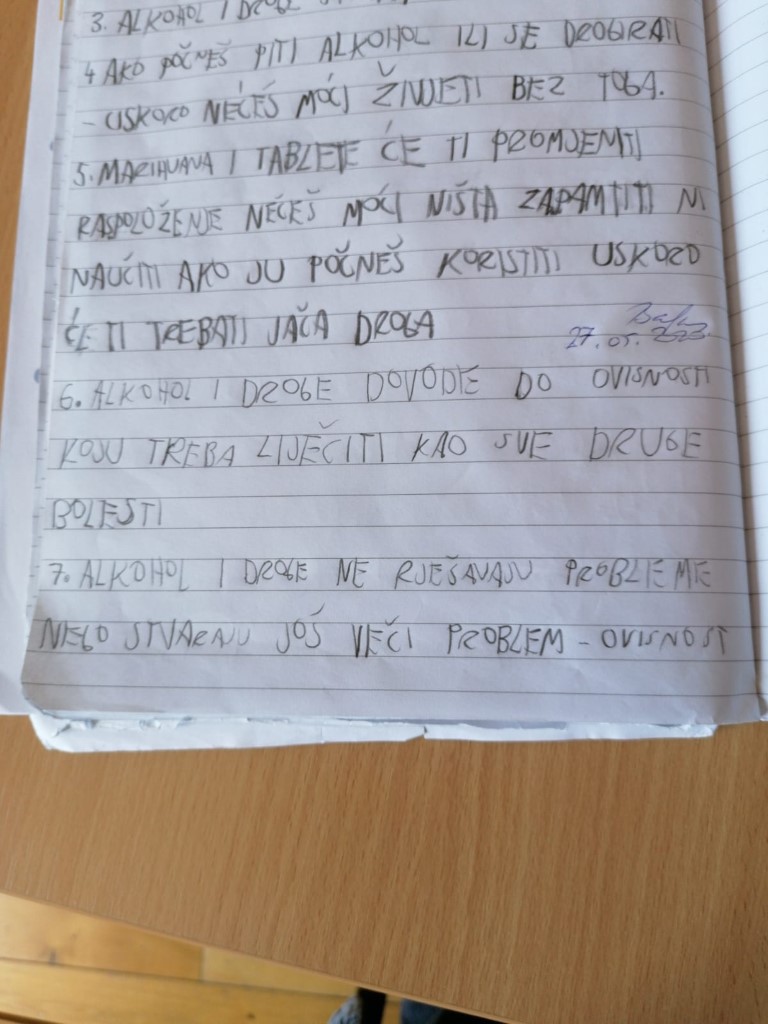 3. ALKOHOL I DROGE
4 AKO POČNEŠ PITI ALKOHOL ILI SE DROGIRATI
- USKORO NEĆEŠ MOĆI ŽIVJETI BEZ TOGA.
5. MARIHUANA I TABLETE ĆE TI PROMJENITI
RASPOLOŽENJE NEĆEŠ MOĆI NIŠTA ZAPAMTITI NI
NAUČITI AKO JU POČNEŠ KORISTITI USKORO
ĆE TI TREBATI JAČA DROGA
27.05.2023.
6. ALKOHOL I DROGE DOVODE DO OVISNOSTI
KOJU TREBA LIJEČITI KAO SVE DRUGE
BOLESTI
7. ALKOHOL I DROGE NE RJEŠAVAJU PROBLEME
NEGO STVARAJU JOŠ VEČI PROBLEM - OVISNOST